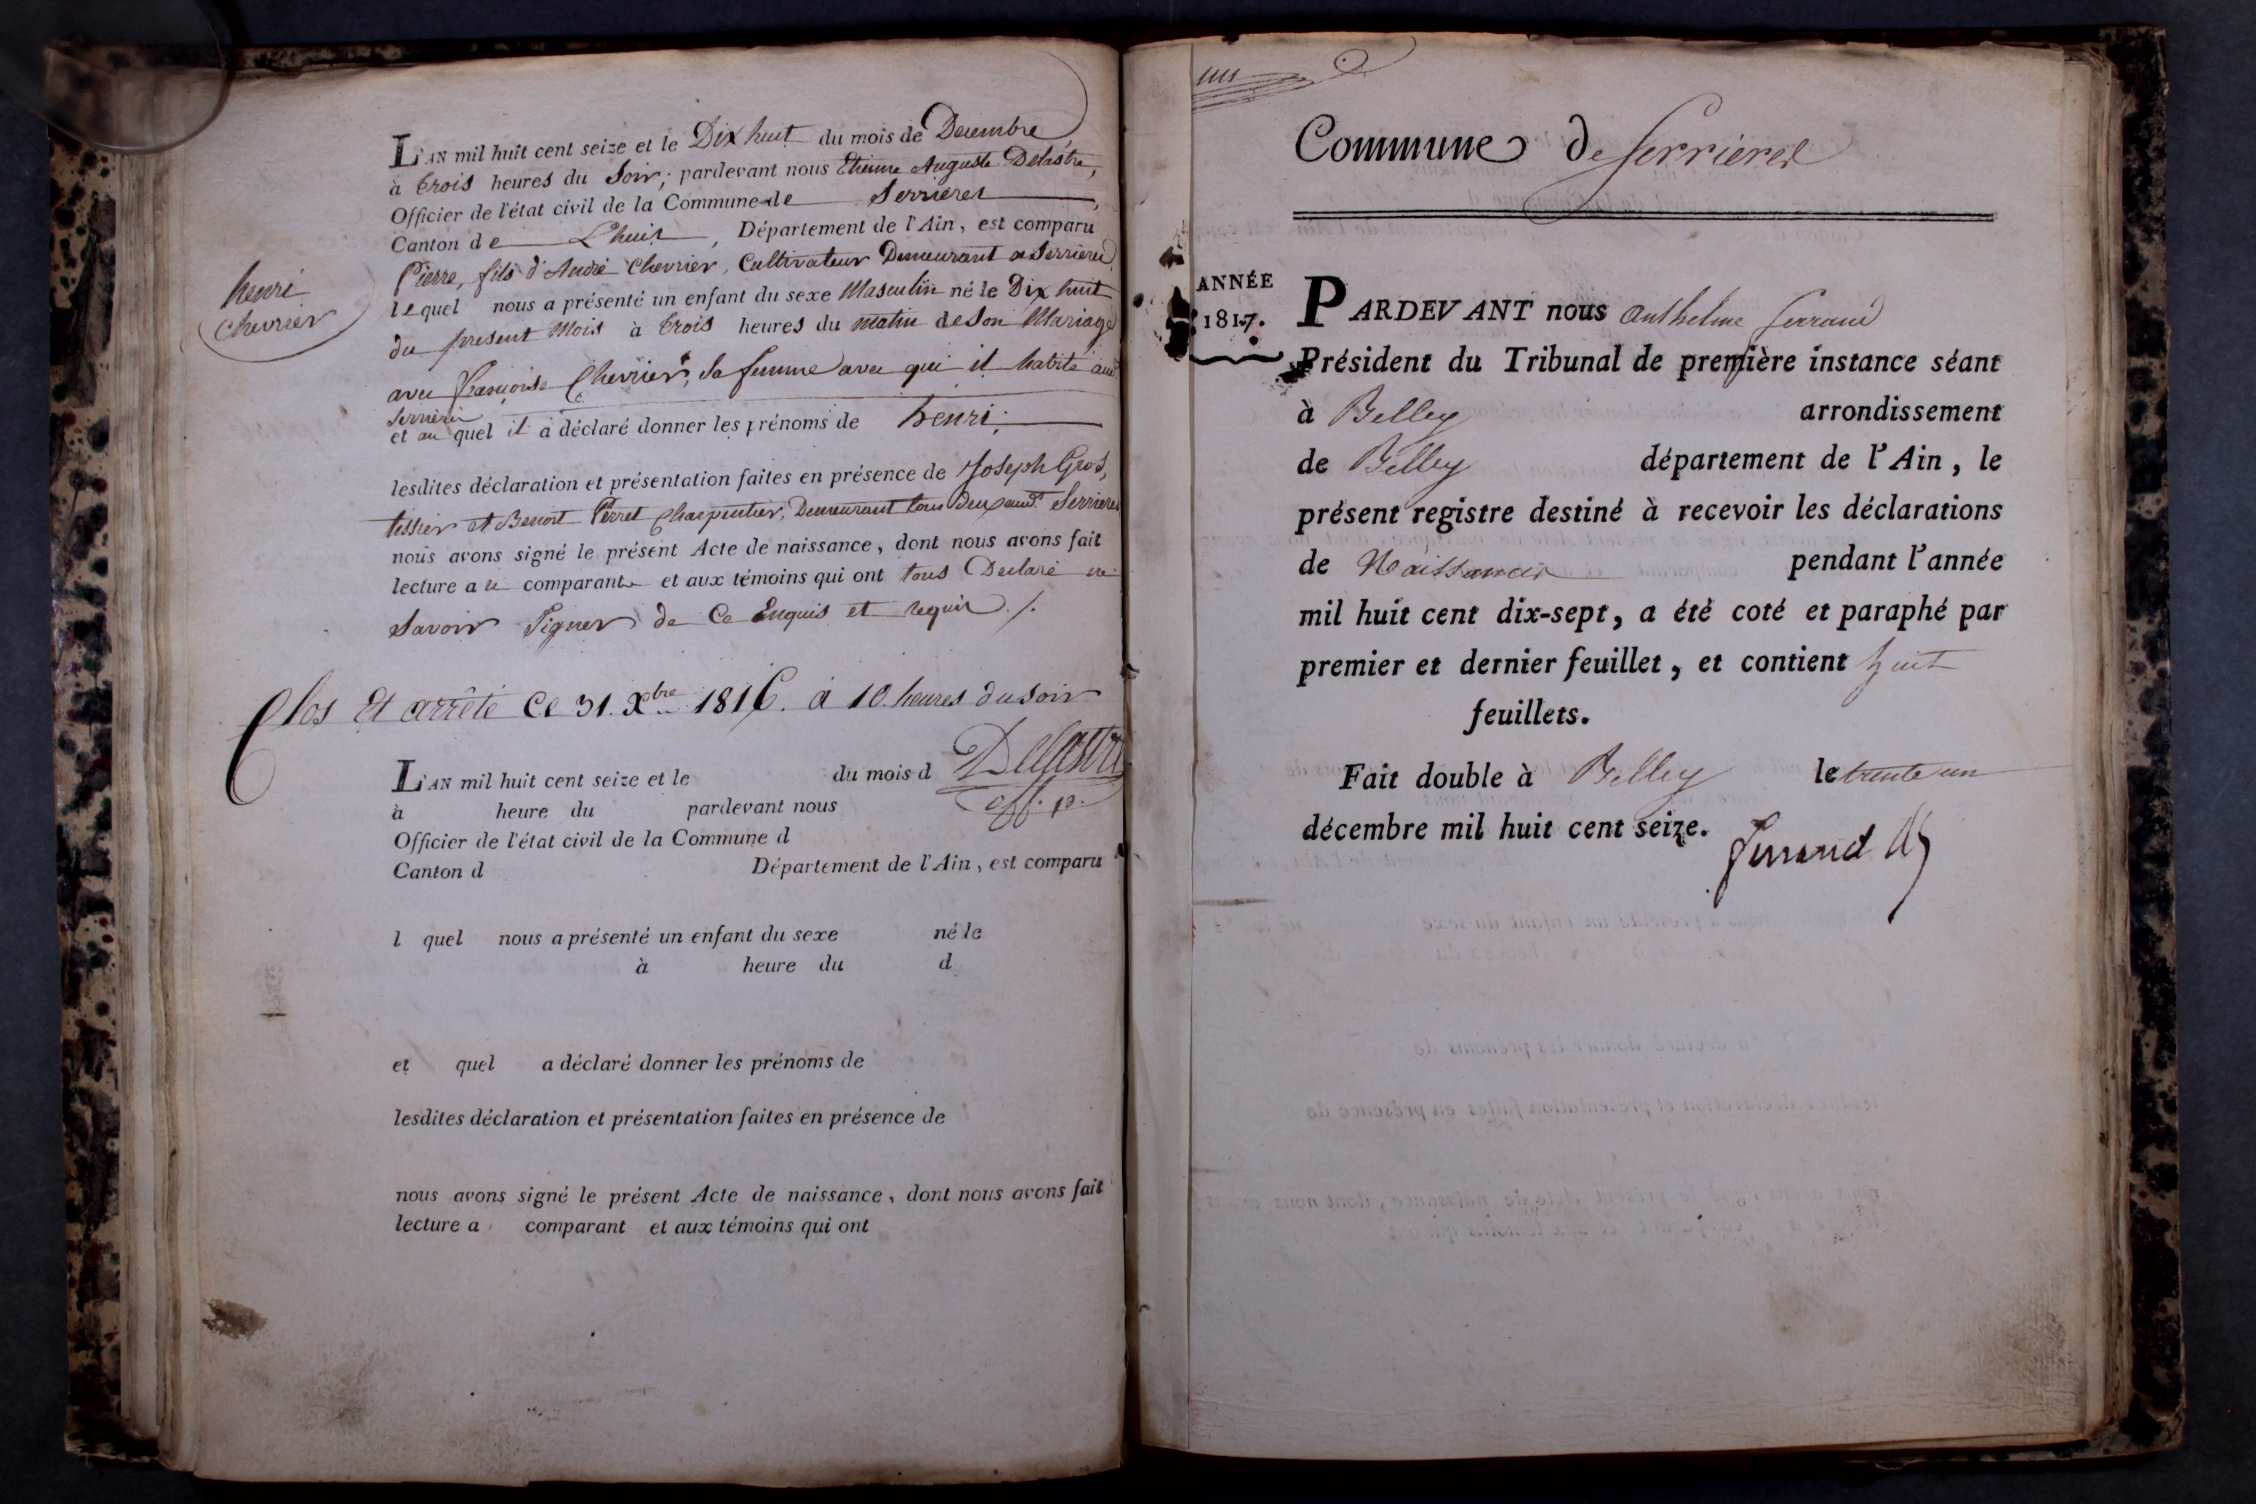 henri
Chevrier
L'AN mil huit cent seize et le Dix huit du mois de Decembre,
à trois heures du Soir; pardevant nous Etienne Auguste Delastre,
Officier de l'état civil de la Commune de Serrieres,
Canton de L'huis, Département de l'Ain, est comparu
Pierre, fils d'André Chevrier, Cultivateur Demeurant a Serrieres,
lequel nous a présenté un enfant du sexe Masculin né le Dix huit
du present Mois à trois heures du matin de Son Mariage
avec françoise Chevrier, Sa femme avec qui il habite aud.
Serrieres
et au quel il a déclaré donner les prénoms de henri;
lesdites déclaration et présentation faites en présence de Joseph Gros,
tissier et Benoit Perret Charpentier, Demeurant tous deux aud. Serrieres
nous avons signé le présent Acte de naissance, dont nous avons fait
lecture au comparant et aux témoins qui ont tous Declaré ne
Savoir Signer de Ce Enquis et requis ./.
Clos Et arrêté Ce 31. Xbre 1816. à 10. heures du soir
Delastre
off. p.
L'AN mil huit cent seize et le du mois d
à heure du pardevant nous
Officier de l'état civil de la Commune d
Canton d Département de l'Ain, est comparu
l quel nous a présenté un enfant du sexe né le
à heure du d
et quel a déclaré donner les prénoms de
lesdites déclaration et présentation faites en présence de
nous avons signé le présent Acte de naissance, dont nous avons fait
lecture a comparant et aux témoins qui ont
Commune de Serrieres
ANNÉE
1817.
PARDEVANT nous Anthelme ferrand
Président du Tribunal de première instance séant
à Belley arrondissement
de Belley département de l'Ain, le
présent registre destiné à recevoir les déclarations
de Naissances pendant l'année
mil huit cent dix-sept, a été coté et paraphé par
premier et dernier feuillet, et contient huit
feuillets.
Fait double à Belley le trente un
décembre mil huit cent seize.
ferrand